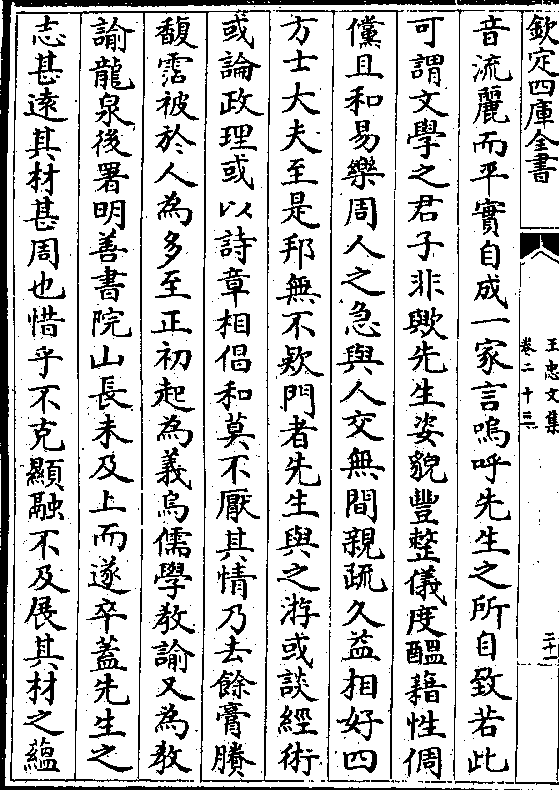 欽定四庫全書
王忠文集
卷二十三
二十一
音流麗而平實自成一家言嗚呼先生之所自致若此
可謂文學之君子非歟先生姿貌豐整儀度醞藉性倜
儻且和易樂周人之急與人交無間親疏久益相好四
方士大夫至是邦無不欵門者先生與之游或談經術
或論政理或以詩章相倡和莫不厭其情乃去餘膏賸
馥霑被於人為多至正初起為義烏儒學教諭又為教
諭龍泉後署明善書院山長未及上而遂卒蓋先生之
志甚遠其材甚周也惜乎不克顯融不及展其材之蘊